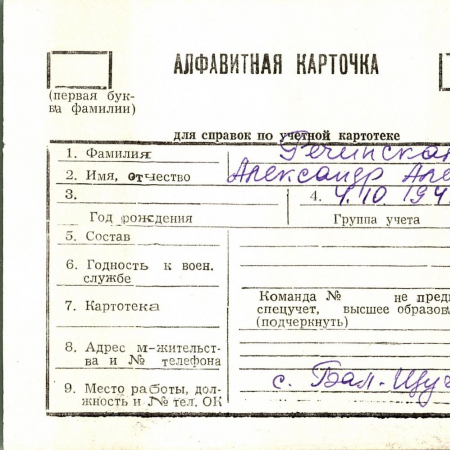 АЛФАВИТНАЯ КАРТОЧКА
(первая бук-
ва фамилии)
для справок по учетной картотеке
1. Фамилия
2. Имя, отчество Александр Але
3. 4. 4.10 194
Год рождения Группа учета
5. Состав
6. Годность к воен.
службе
7. Картотека
Команда № не пред
спецучет, высшее образов
(подчеркнуть)
8. Адрес м-жительст-
ва и № телефона
9. Место работы, дол-
жность и № тел. ОК
с. Бал-Щуч